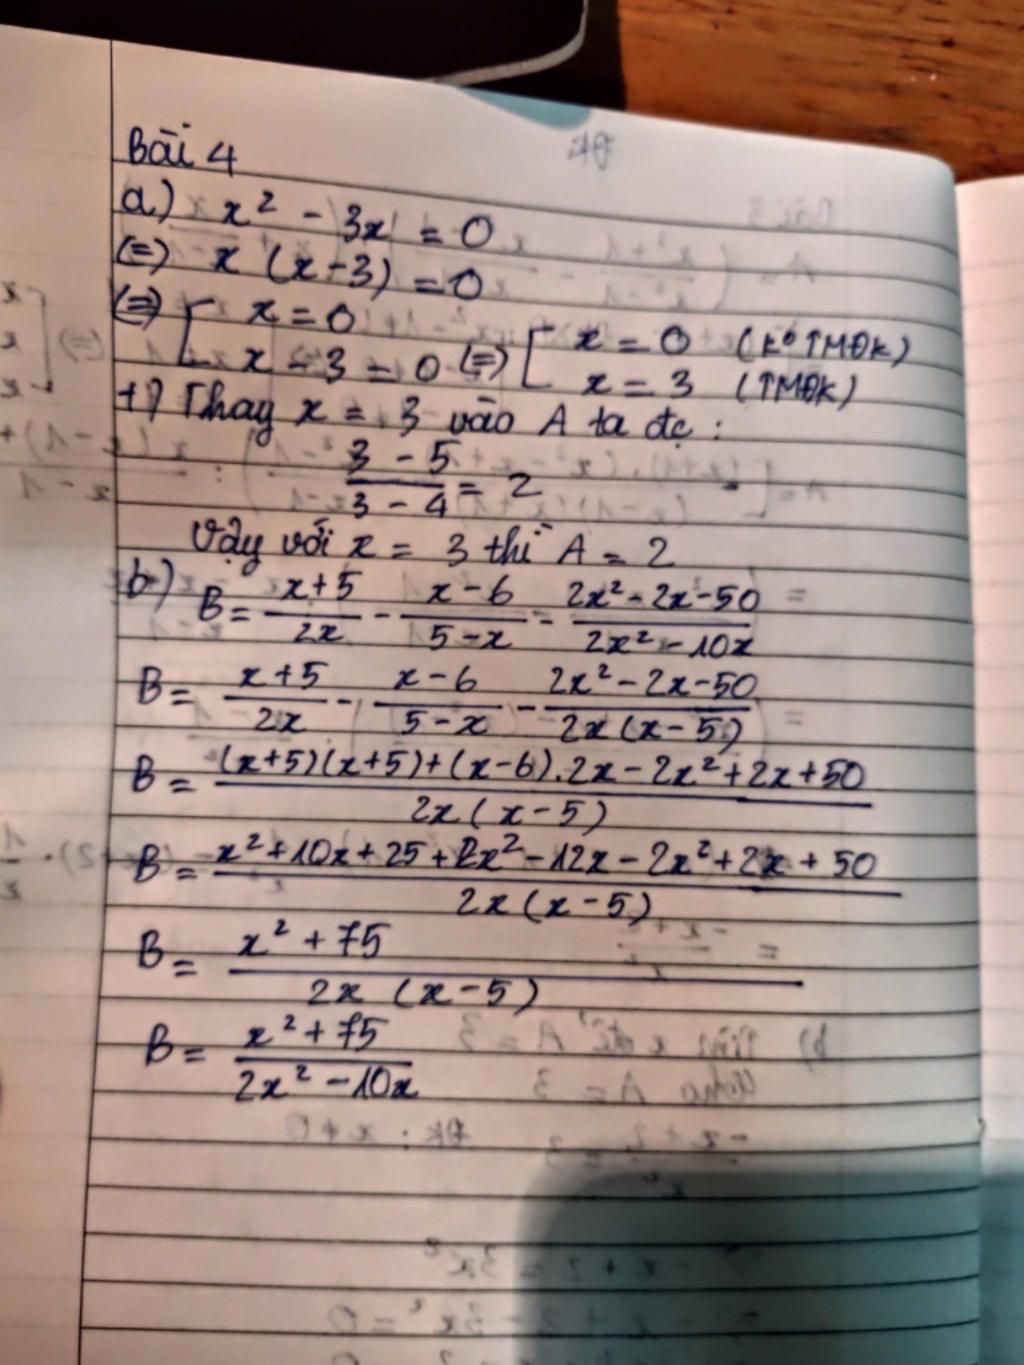 Bài 4
a) x² - 3x = 0
(=) x (x-3) = 0
(=) [ x = 0
x - 3 = 0 (=) [ x = 0 (K° TMĐK)
x = 3 (TMĐK)
+) Thay x = 3 vào A ta đc :
(3 - 5)/(3 - 4) = 2
Vậy với x = 3 thì A = 2
b) B = (x+5)/(2x) - (x-6)/(5-x) - (2x²-2x-50)/(2x²-10x)
B = (x+5)/(2x) - (x-6)/(5-x) - (2x²-2x-50)/(2x(x-5))
B = ((x+5)(x+5)+(x-6).2x-2x²+2x+50)/(2x(x-5))
B = (x²+10x+25+2x²-12x-2x²+2x+50)/(2x(x-5))
B = (x²+75)/(2x (x-5))
B = (x²+75)/(2x²-10x)